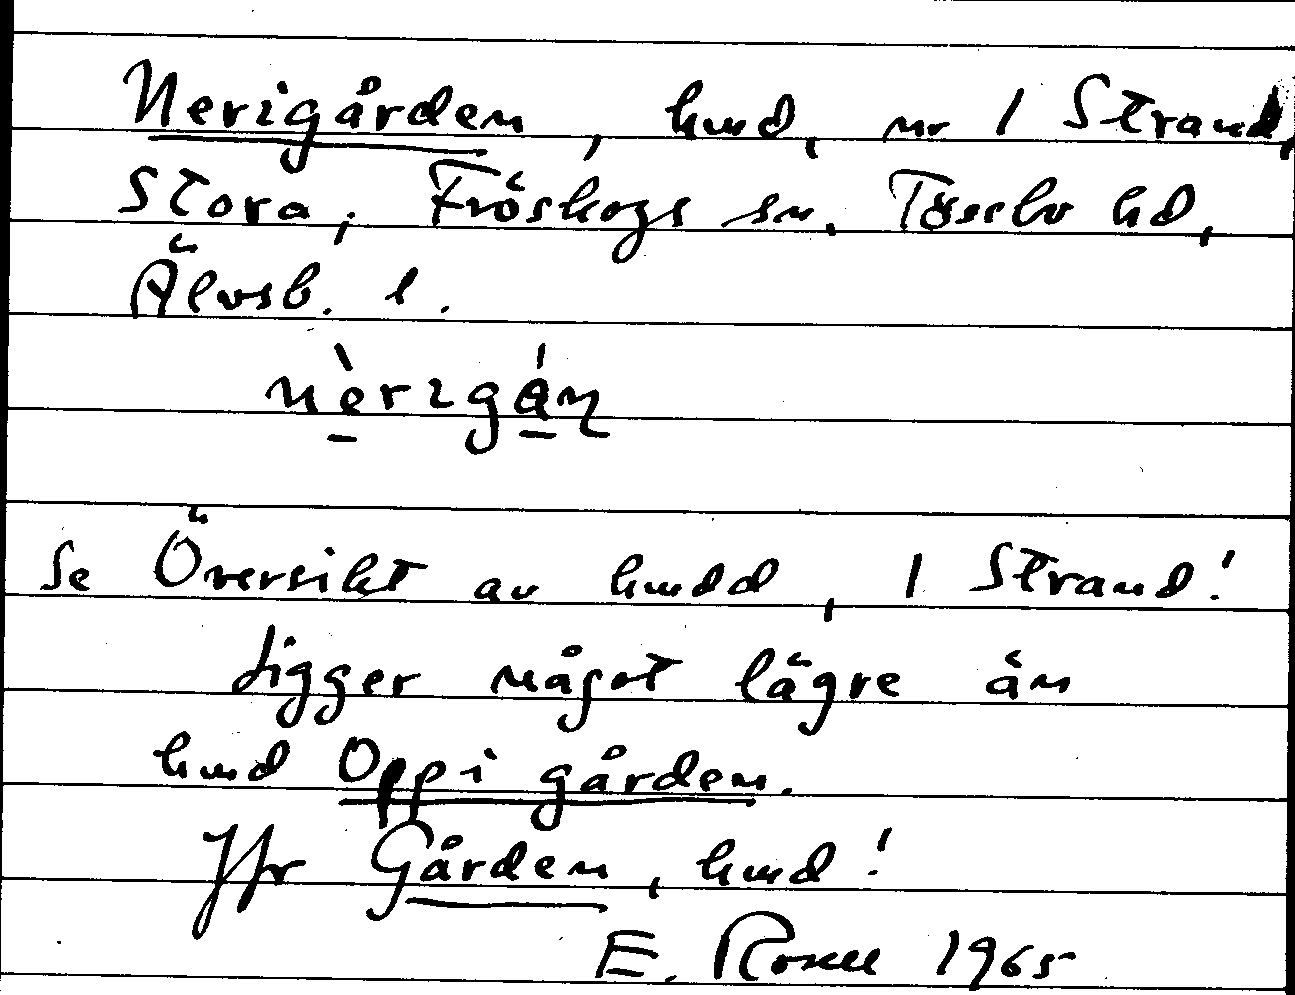 Nerigården, hmd, nr 1 Strand,
Stora, Fröskogs sn. Tössbo hd,
Älvsb. l.
nèrigán
Se Översikt av hmdd, 1 Strand!
Ligger något lägre än
hmd Oppi gården.
Jfr Gården, hmd!
E. 1965